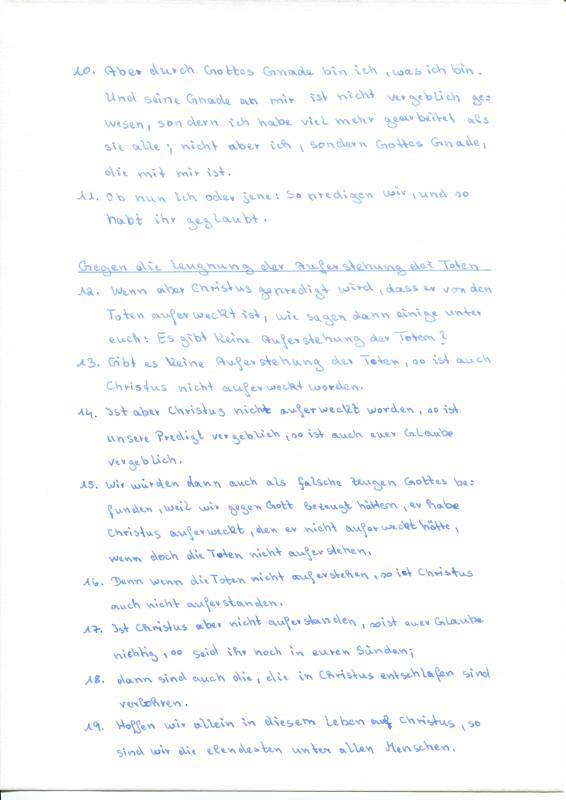 10. Aber durch Gottes Gnade bin ich, was ich bin.
Und seine Gnade an mir ist nicht vergeblich ge=
wesen, sondern ich habe viel mehr gearbeitet als
sie alle; nicht aber ich, sondern Gottes Gnade,
die mit mir ist.
11. Ob nun ich oder jene: So predigen wir, und so
habt ihr geglaubt.
Gegen die Leugnung der Auferstehung der Toten
12. Wenn aber Christus gepredigt wird, dass er von den
Toten auferweckt ist, wie sagen dann einige unter
euch: Es gibt keine Auferstehung der Toten?
13. Gibt es keine Auferstehung der Toten, so ist auch
Christus nicht auferweckt worden.
14. Ist aber Christus nicht auferweckt worden, so ist
unsere Predigt vergeblich, so ist auch euer Glaube
vergeblich.
15. Wir würden dann auch als falsche Zeugen Gottes be=
funden, weil wir gegen Gott bezeugt hätten, er habe
Christus auferweckt, den er nicht auferweckt hätte,
wenn doch die Toten nicht auferstehen.
16. Denn wenn die Toten nicht auferstehen, so ist Christus
auch nicht auferstanden.
17. Ist Christus aber nicht auferstanden, so ist euer Glaube
nichtig, so seid ihr noch in euren Sünden;
18. dann sind auch die, die in Christus entschlafen sind
verlohren.
19. Hoffen wir allein in diesem Leben auf Christus, so
sind wir die elendesten unter allen Menschen.